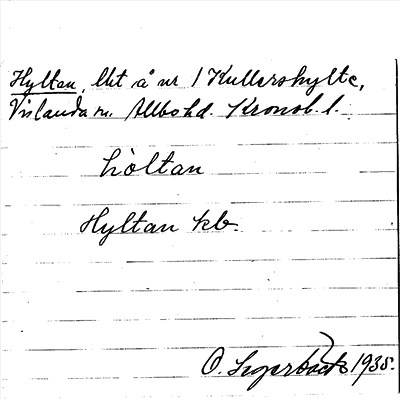 Hyltan, lht å nr 1 Kullershylte,
Vislanda sn. Allbo hd. Kronob. l.
hòltan
Hyltan kb.
O. 1935.